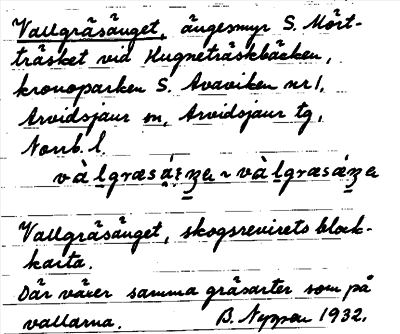 Vallgräsänget, ängesmyr S. Mört-
träsket vid Hugneträskbäcken,
kronoparken S. Avaviken nr 1,
Arvidsjaur sn, Arvidsjaur tg,
Norrb. l.
Vallgräsänget, skogsrevirets block-
karta.
Där växer samma gräsarter som på
vallarna. B. Nyppen 1932.